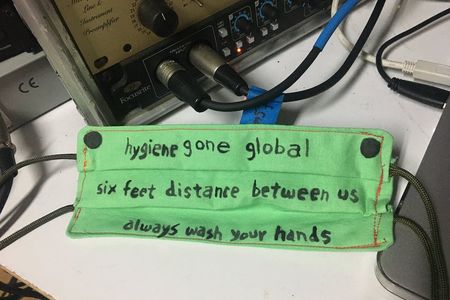 Line &
Instrument
Preamplifier
Focusrite
CE
hygiene gone global
six feet distance between us
always wash your hands